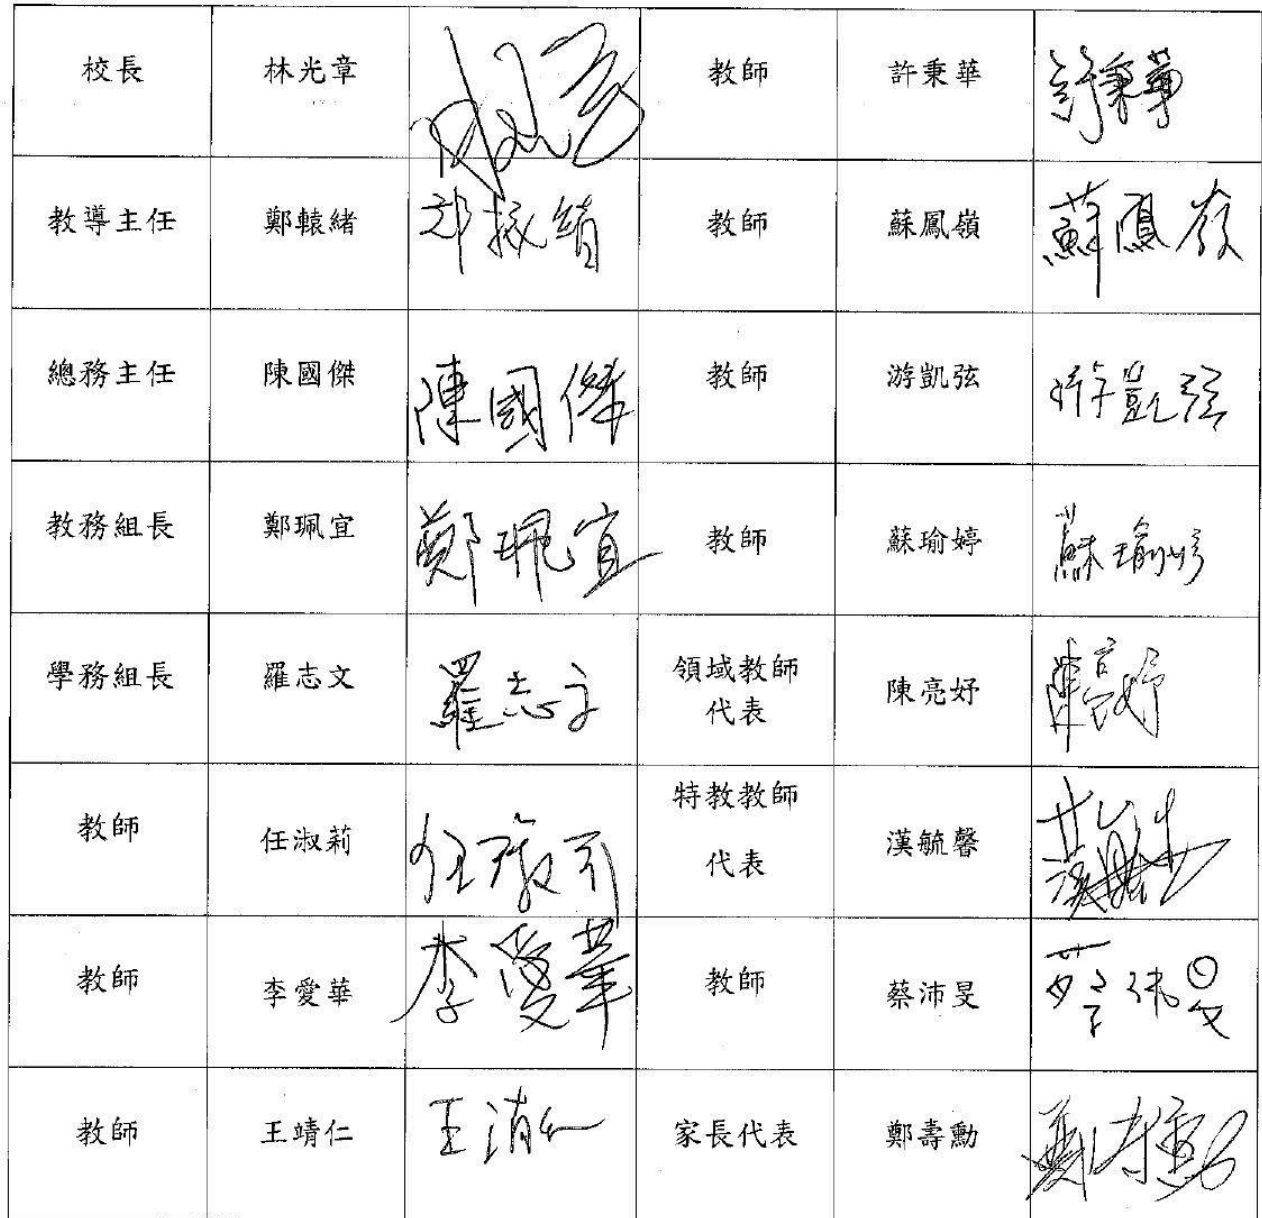 校長 林光章 教師 許秉華 許秉華
教導主任 鄭轅緒 教師 蘇鳳嶺 蘇鳳嶺
總務主任 陳國傑 陳國傑 教師 游凱弦 游凱弦
教務組長 鄭珮宜 鄭珮宜 教師 蘇瑜婷 蘇瑜婷
學務組長 羅志文 羅志文 領域教師
代表 陳亮妤 陳亮妤
教師 任淑莉 任淑莉 特教教師
代表 漢毓馨
教師 李愛華 李愛華 教師 蔡沛旻 蔡沛旻
教師 王靖仁 王靖仁 家長代表 鄭壽勳